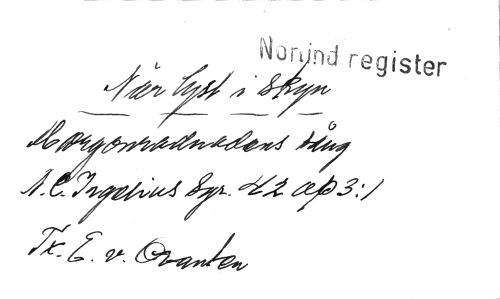 Norlind register
När lyst i skyn
Morgonradnadens sång
A.C. Ingelius Sgr. H 2 op 3:1
Tx. E. v. Qvanten